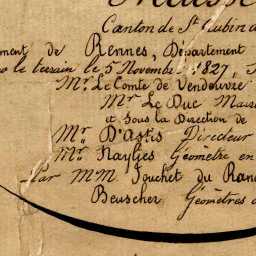 Canton de St Aubin d
ment de Rennes, Département
le terrain le 5 Novembre 1827,
Mr. Le Comte de Vendeuvre
Mr Le Duc Mais
et Sous la Direction de
Mr. D'Astis Directeur
Mr. Naylies Géomètre en
Par MM Jouchet du Ran
Beuscher, Géomètres d